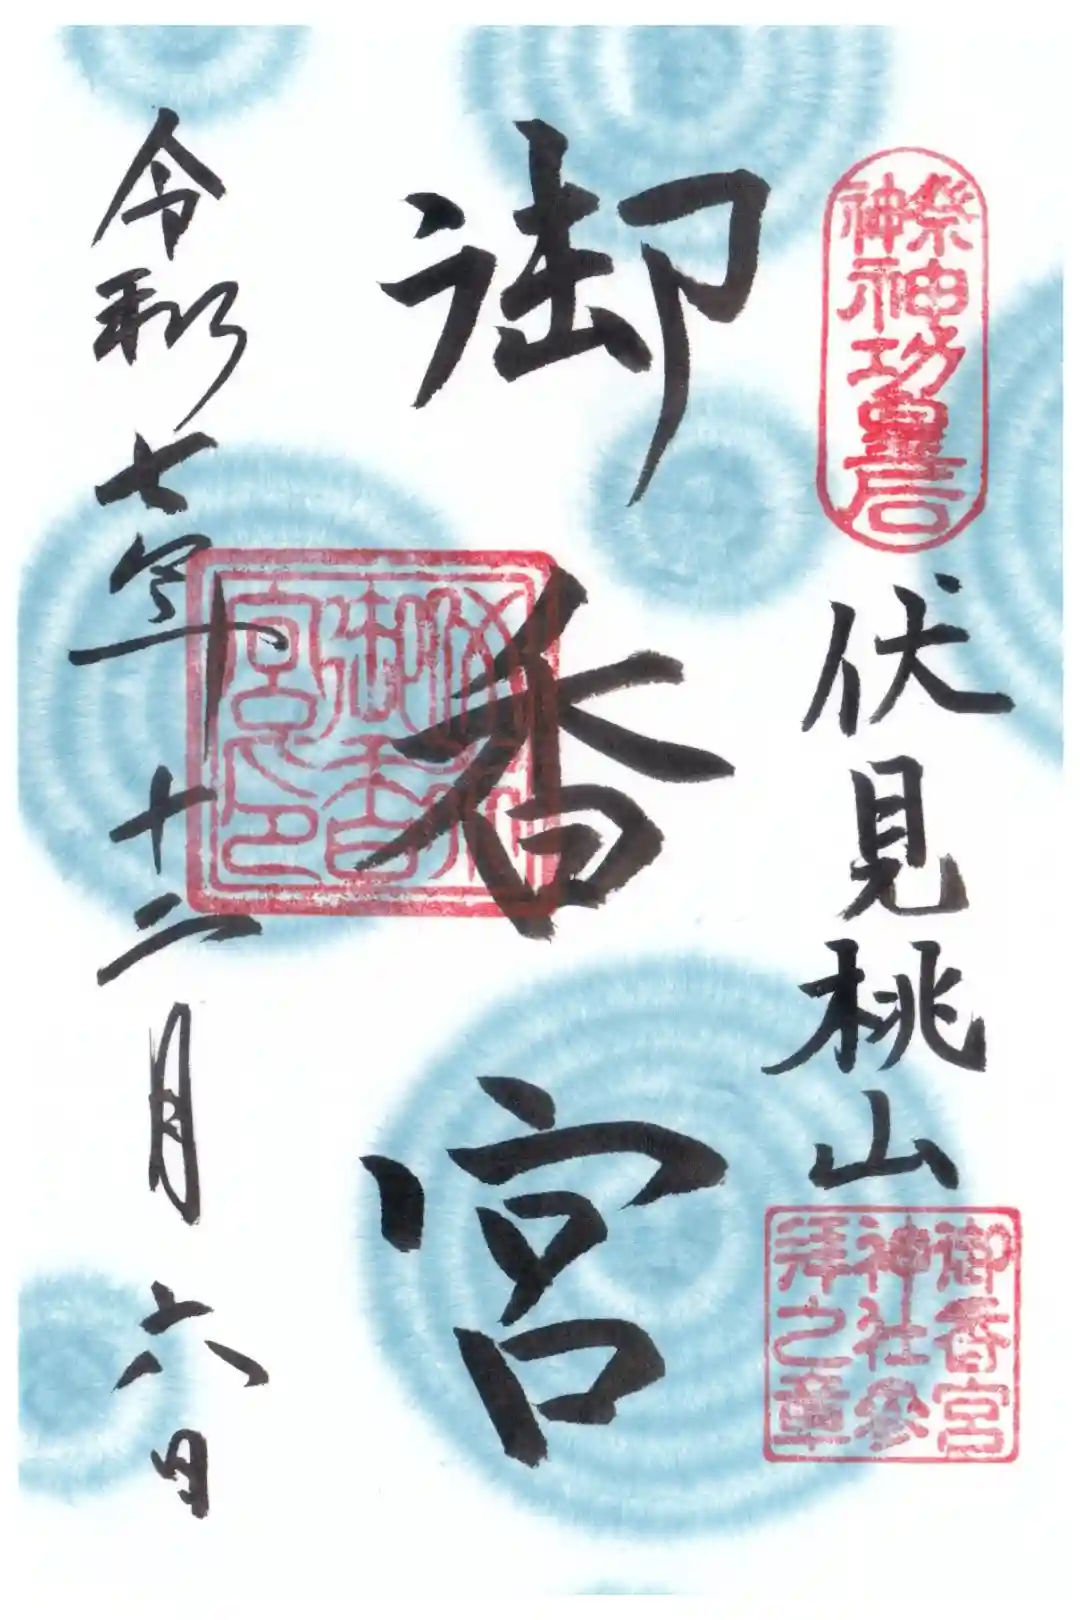 祭神
神功皇后
伏見桃山
御香宮
神社参
拝之章
御香宮
御香
宮印
令和七年十二月六日